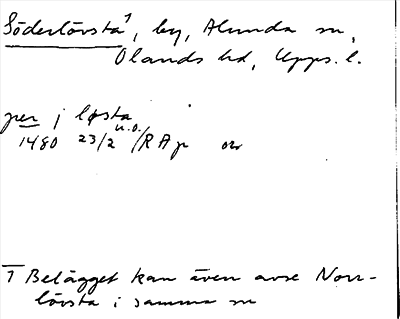 Söderlövsta¹, by, Alunda sn,
Olands hd, Upps. l.
per j løsta
1480 23/2 u.o. / RAp or
1 Belägget kan även avse Norr-
lövsta i samma sn